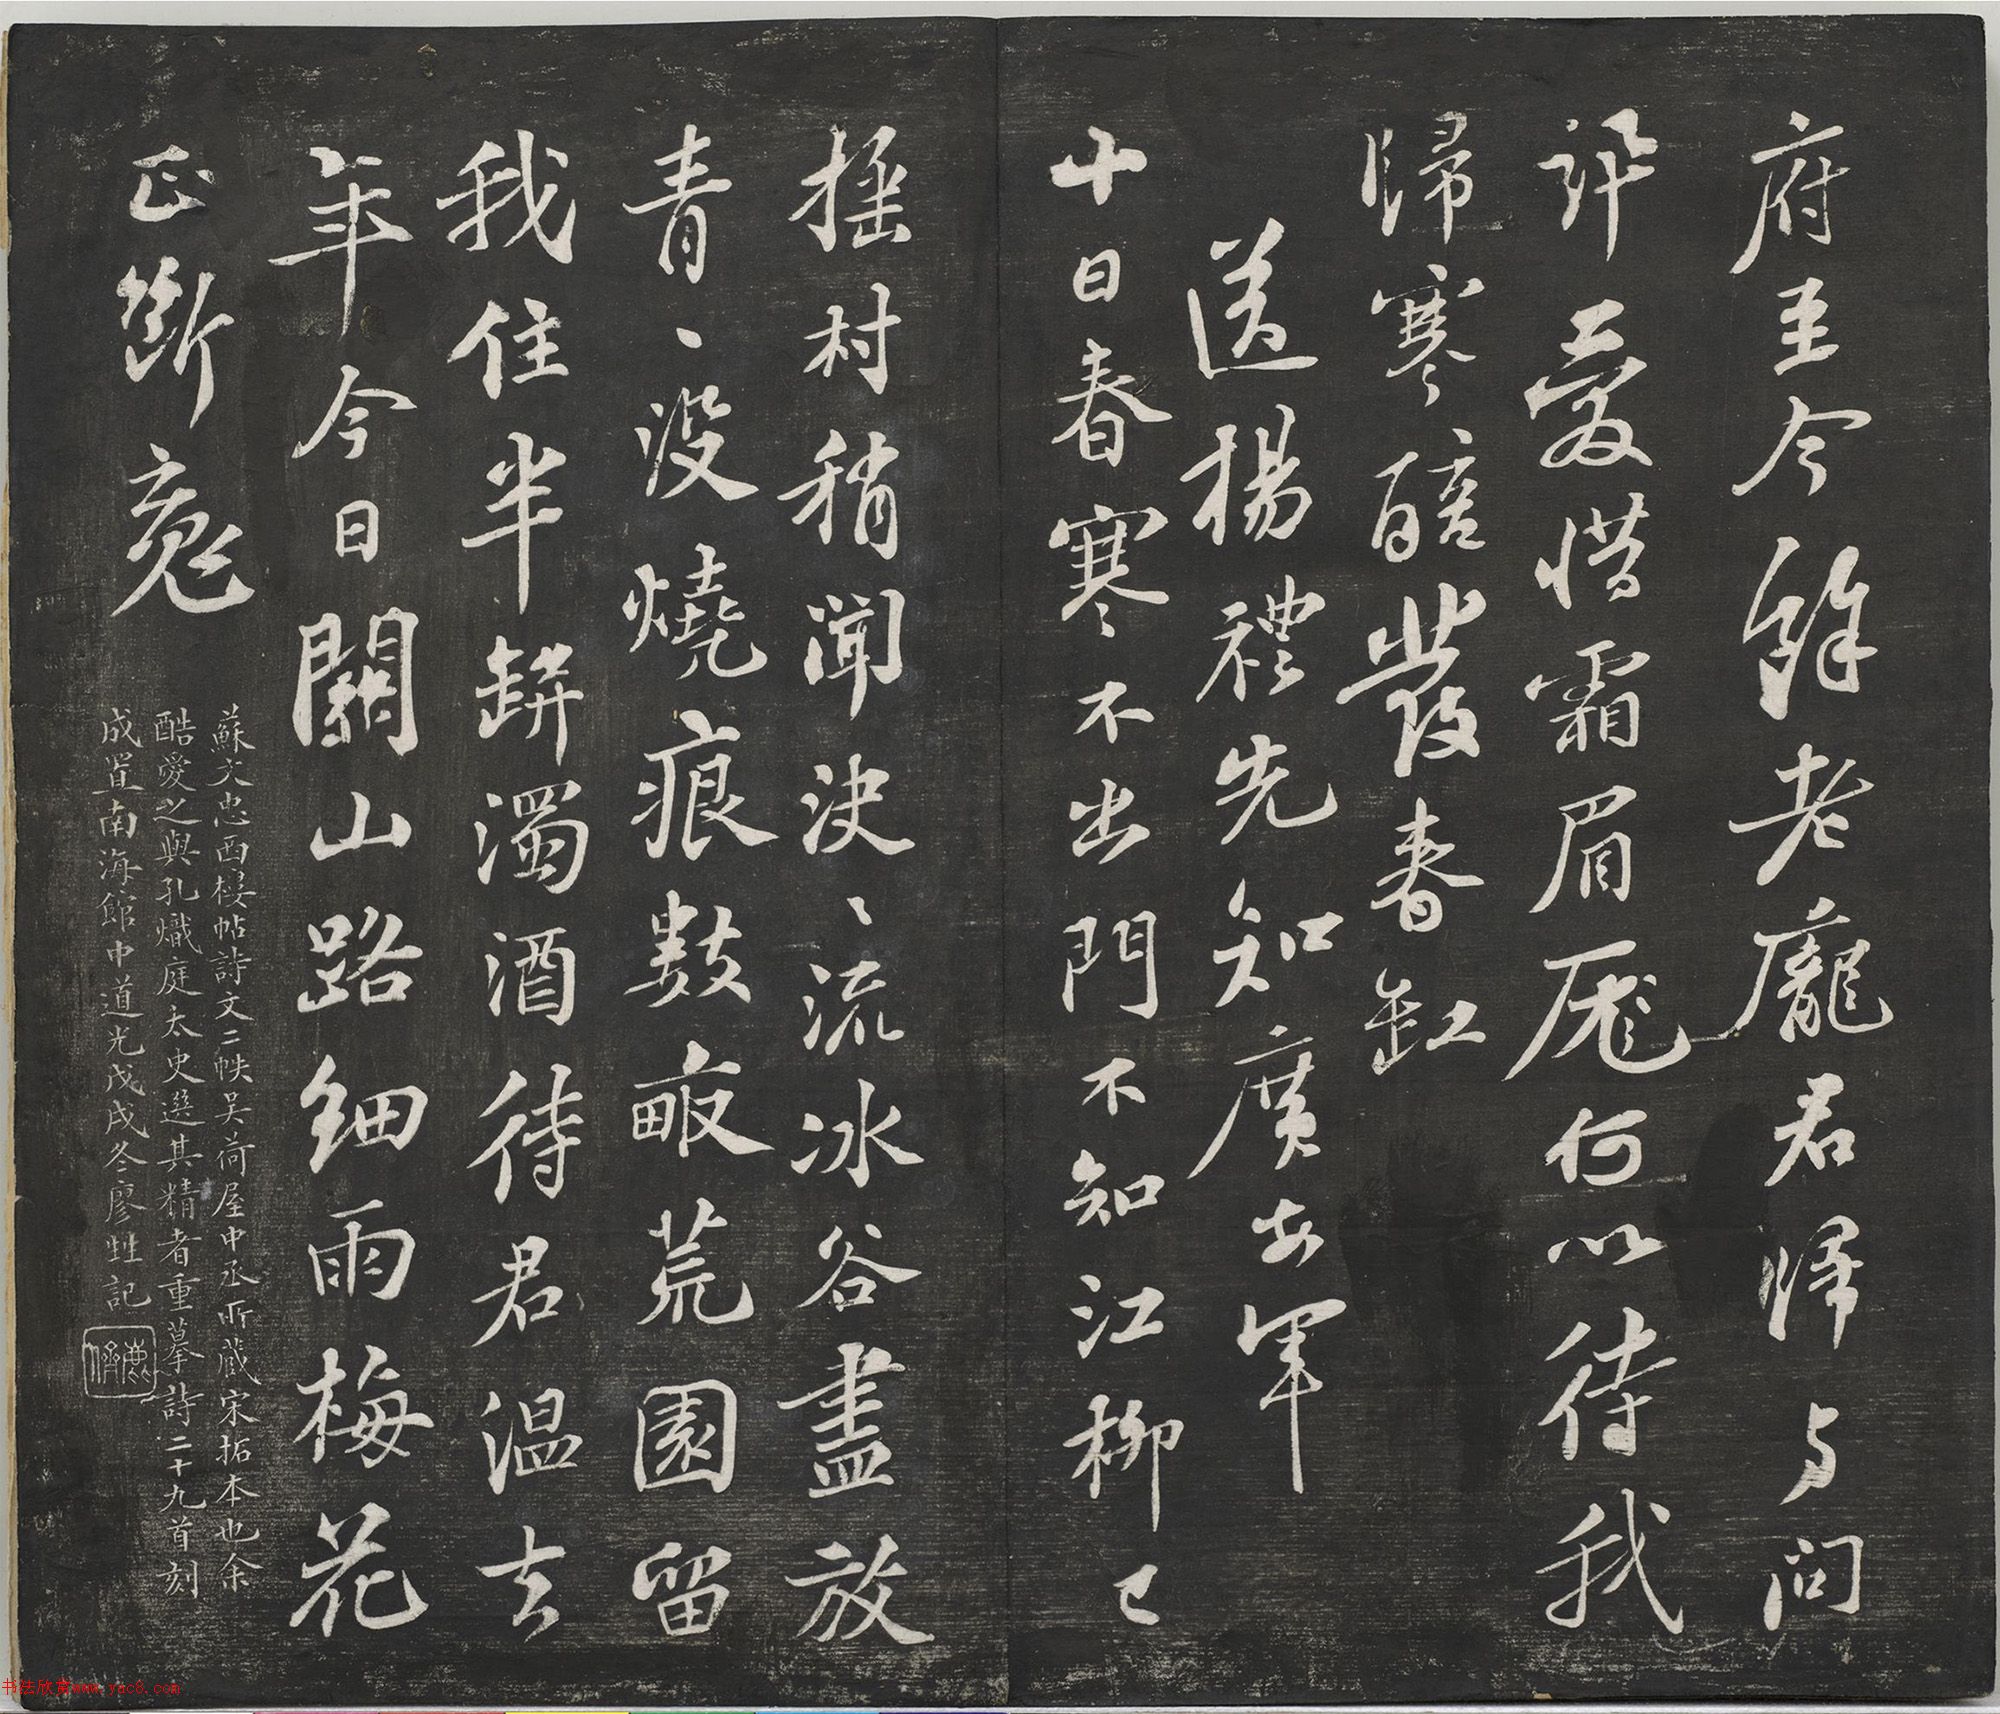 府至今餘老龐君歸与問
訊愛惜霜眉厖何以待我
歸寒醅發春缸
送楊禮先知廣安軍
十日春寒不出門不知江柳已
搖村稍聞決〻流冰谷盡放
青〻没燒痕數畝荒園留
我住半缾濁酒待君温去
年今日關山路細雨梅花
正斷䰟
蘇文忠西樓帖詩文二帙吴荷屋中丞所蔵宋拓本也余
酷愛之與孔熾庭太史選其精者重摹詩二十九首刻
成置南海館中道光戊戌冬廖甡記
书法欣赏www.yac8.com